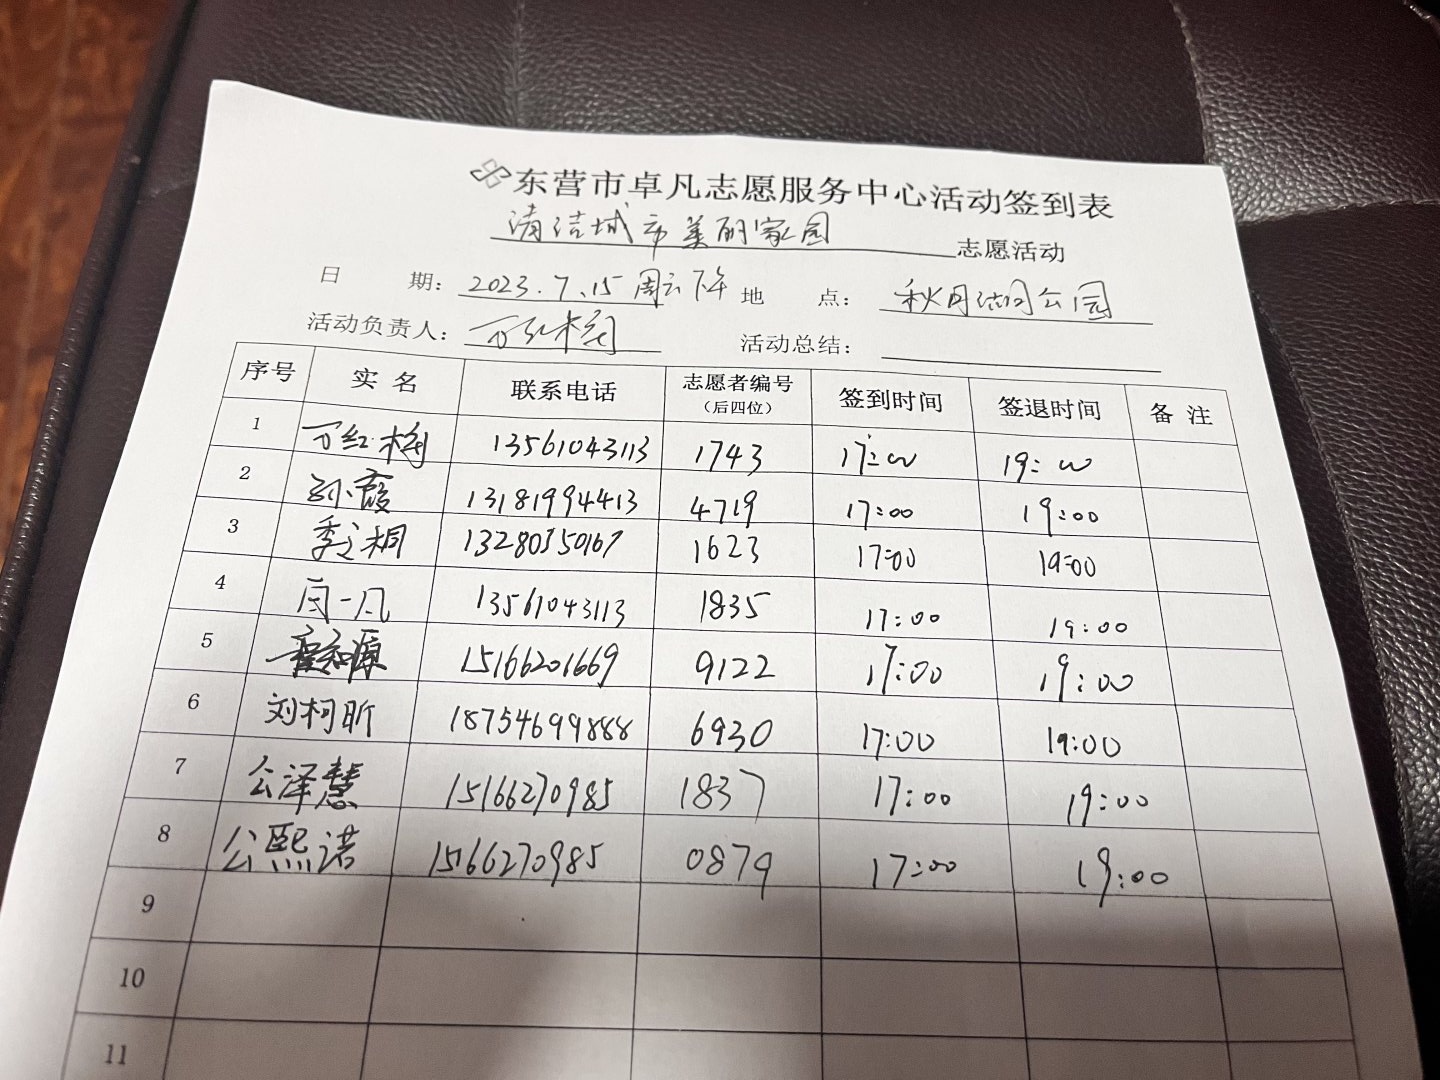 东营市卓凡志愿服务中心活动签到表
清洁城市美丽家园 志愿活动
日 期: 2023.7.15 周六下午 地 点: 秋月湖公园
活动负责人: 万红梅 活动总结:
序号 实 名 联系电话 志愿者编号 (后四位) 签到时间 签退时间 备 注
1 万红梅 13561043113 1743 17:00 19:00
2 孙霞 13181994413 4719 17:00 19:00
3 季之桐 13280350167 1623 17:00 19:00
4 闫一凡 13561043113 1835 17:00 19:00
5 知源 15166201669 9122 17:00 19:00
6 刘柯昕 18754699888 6930 17:00 19:00
7 公泽慧 15166270985 1837 17:00 19:00
8 公熙诺 15166270985 0879 17:00 19:00
9
10
11